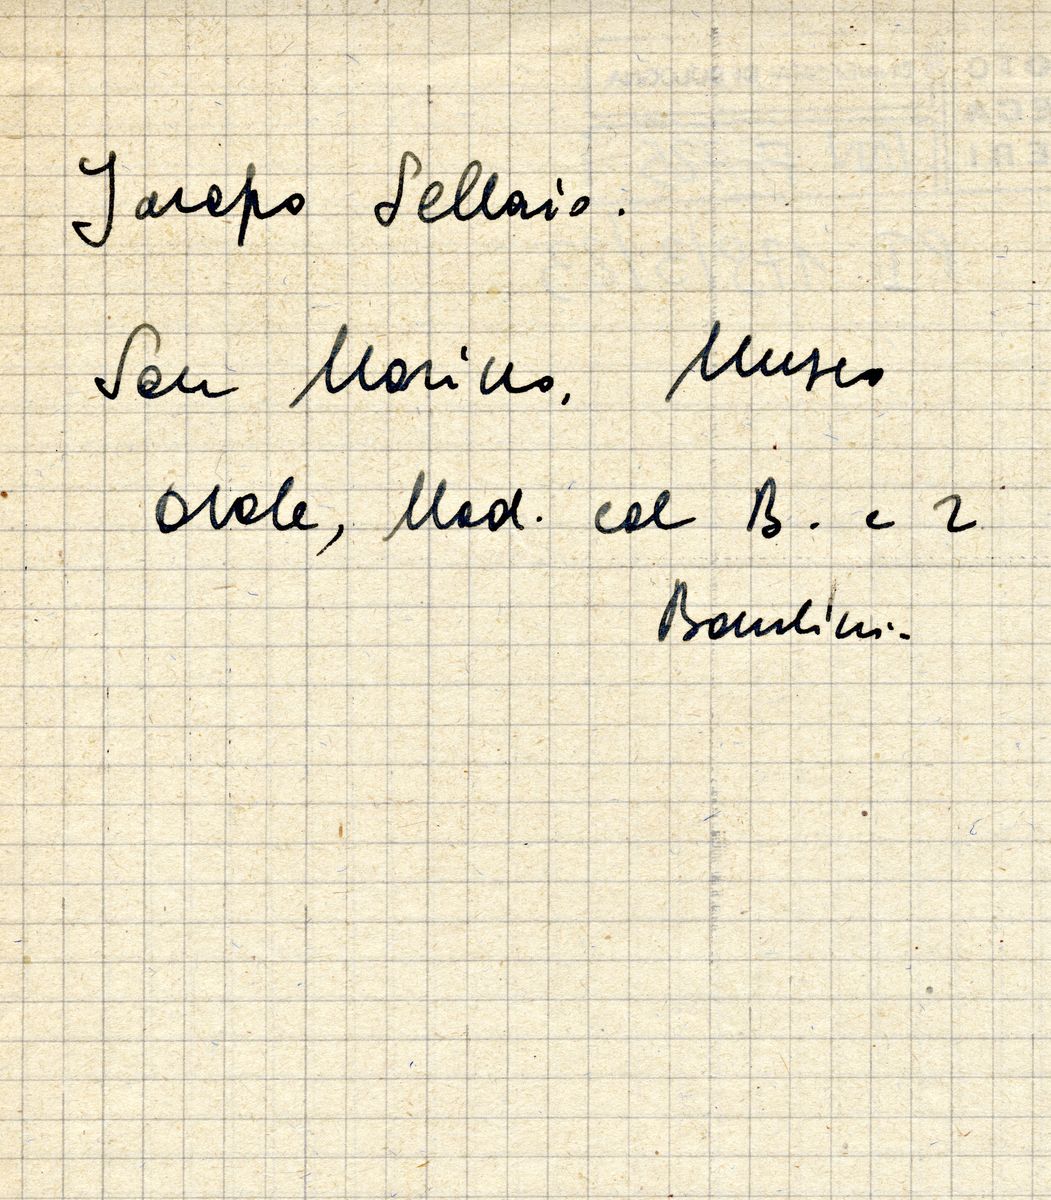 Jacopo Sellaio.
San Marino, Museo
Ovale, Mad. col B. e 2
Bambini.